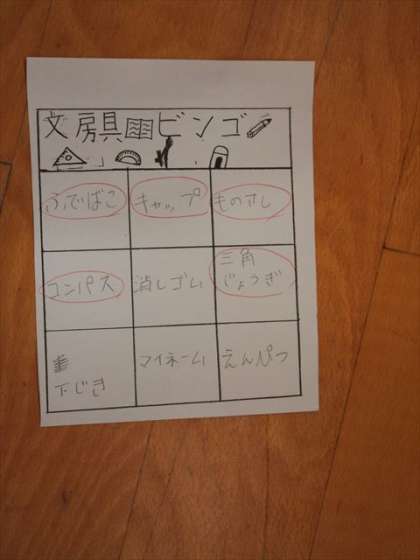 文房具ビンゴ
ふでばこ
キャップ
ものさし
コンパス
消しゴム
三角
じょうぎ
下じき
マイネーム
えんぴつ